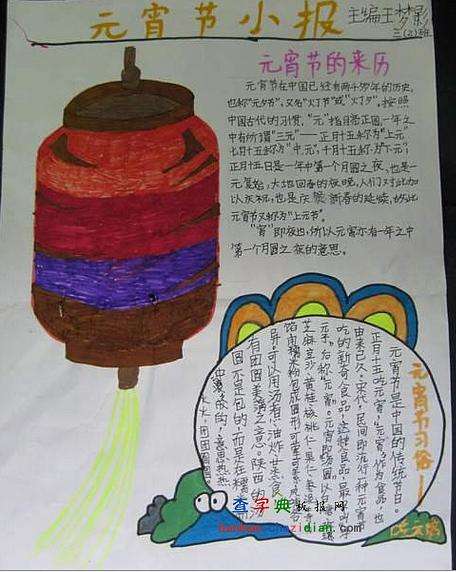 元宵节小报
主编王梦影
三(2)班
元宵节的来历
元宵节在中国已经有两千多年的历史,
也称"元夕节",又名"灯节"或"灯夕"。按照
中国古代的习惯,"元"指月常正因,一年之
中有所谓"三元"——正月十五称为"上元",
七月十五称为"中元",十月十五称为"下元",
正月十五日是一年中第一个月圆之夜,也是一
元复始,大地回春的夜晚,人们对此加
以庆祝,也是庆贺新春的延续,故此
元宵节又称为"上元节"。
"宵"即夜也,所以元宵亦有一年之中
第一个月圆之夜的意思。
元宵节习俗——
吃元宵
元宵节是中国的传统节日。
正月十五吃元宵,"元宵"作为食品,也
由来已久。宋代,民间即流行一种元宵节
吃的新奇食品。这种食品,最早叫"浮
元子"后称"元宵"。元宵即"汤圆"以白糖
芝麻豆沙黄桂核桃仁果仁枣泥等
馅用糯米粉包成圆形可荤可素
异。可以用汤煮、油炸、蒸食,
有团圆美满之意。陕西的
圆不是包的,而是在糯
查字典板报网
banbao.chazidian.com